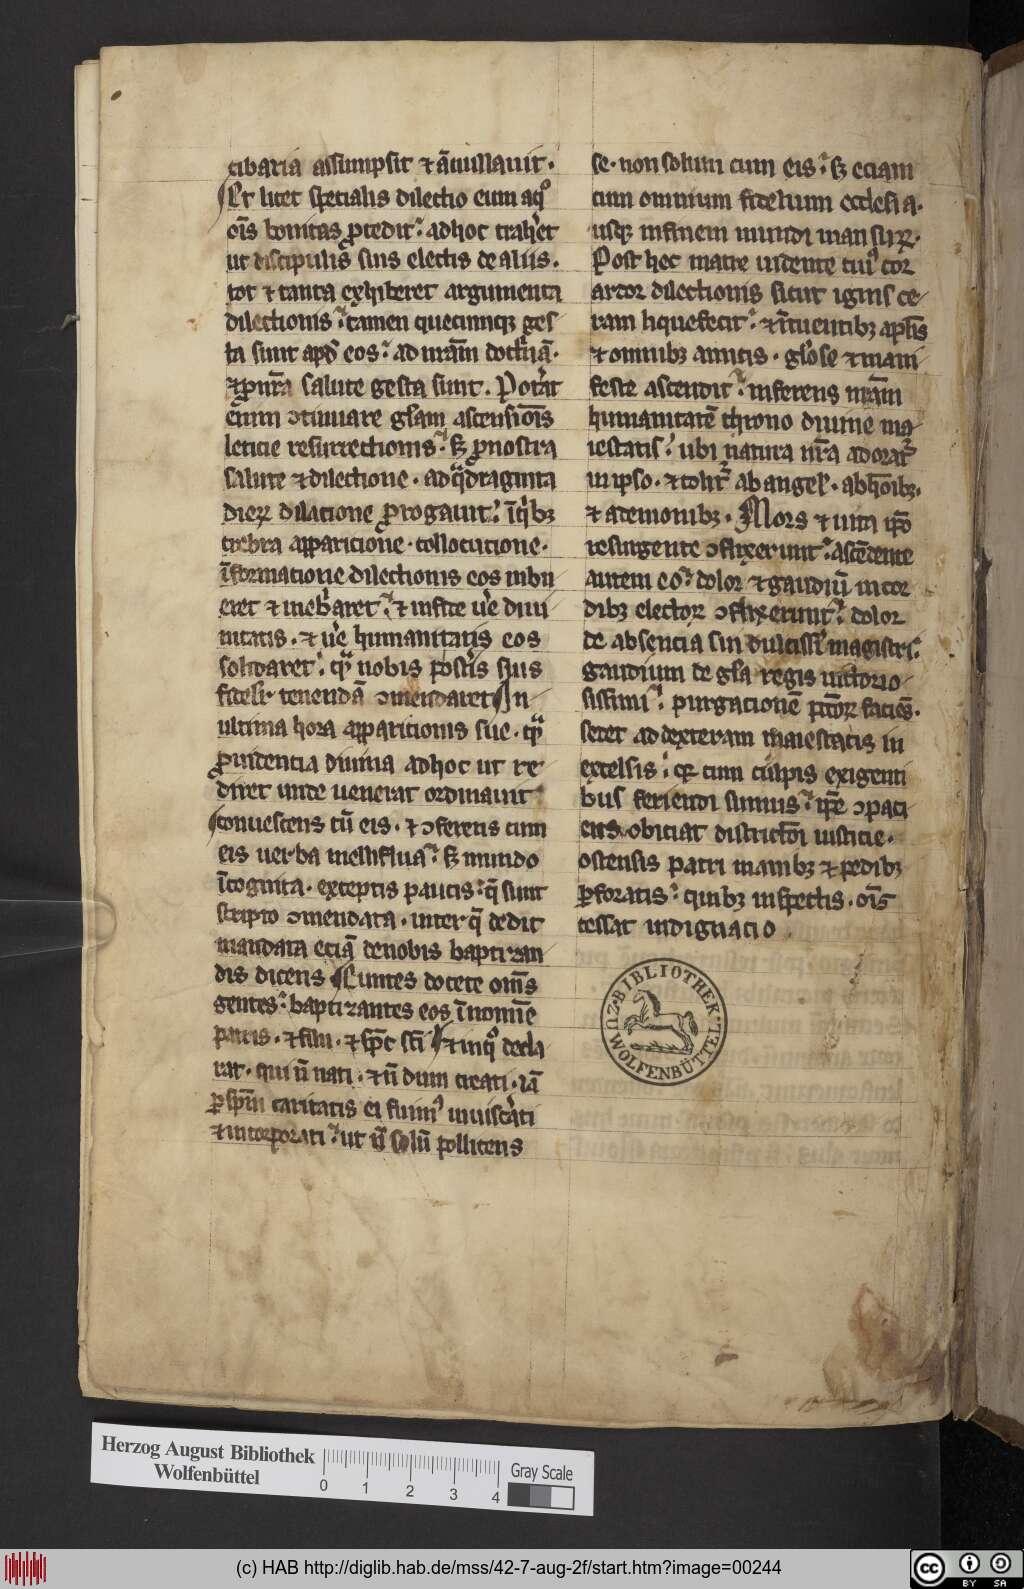 cibaria assumpsit ⁊ āmīstauit.
Et licet specialis dilectio eum a qͦ
oīs bonitas ꝓcedit. ad hoc trahͤet
ut discipulis suis electis de aliis.
tot ⁊ tanta exhiberet argumenta
dilectionis. tamen quecumqꝫ ges
ta sunt apd̓ eos. ad nrām doctͥnā.
⁊ ꝓ nrā salute gesta sunt. Potͣat
enim ↄtinuare glam ascensiōis
leticie resurrectionis. sꝫ ꝓ nostra
salute ⁊ dilectione. ad qͣdraginta
dieꝝ dilatione ꝓrogauit. ī qͥbꝫ
crebra apparitione. collocutione.
īformatione dilectionis eos inbu
eret ⁊ inebͥaret. ⁊ in fide ue̅ diui
nitatis. ⁊ ue̅ humanitatis eos
solidaret. qͣ nobis postͥs suis
fidelr̄ tenendā ↄmendaret In
ultima hora apparitionis sue. qͣ
ꝓuidentia diuina ad hoc ut re
diret unde uenerat ordinauit
conuescens cū eis. ⁊ ↄferens cum
eis uerba melliflua. sꝫ mundo
īcognita. exceptis paucis. q̄ sunt
scripto ↄmendata. inter q̄ dedit
mandata eciā de nobis baptizan
dis dicens Euntes docete om̄s
gentes. baptizantes eos ī nomīe
patris. ⁊ filii. ⁊ sp̄c sc̄i ⁊ in qͦ decla
rat. qui ū nati. ⁊ ū dum creati. iā
ꝑ sp̄m caritatis ei fuimꝰ inuiscͣati
⁊ incorporati. ut ū solū pollicens
se. non solum cum eis. sꝫ eciam
cum omnium fidelium ecclesia.
usqꝫ in finem mundi mansurꝝ.
Post hec matre uidente cuiꝰ cor
ardor dilectionis sicut ignis ce
ram liquefecit. ⁊ ītuentibꝫ apl̄is
⁊ omnibꝫ amicis. glͦose ⁊ mani
feste ascendit. inferens nrām
humanitatē throno diuine ma
iestatis. ubi natura nrā adoratͬ
in ipso. ⁊ colitͬ ab angel̄. ab hōībꝫ.
⁊ a demonibꝫ. Mors ⁊ uita ip̄o
resurgente ↄflixerunt. ascēdente
autem eo. dolor ⁊ gaudiū in cor
dibꝫ electoꝝ ↄflixerunt. dolor
de absencia sui dulcissīi magistri.
gaudium de gl̄a regis uictorio
sissimi. purgacionē pccōꝝ faciēs.
sedet ad dexteram maiestatis in
excelsis. qꝛ cum culpis exigenti
bus feriendi sumus. ip̄e ↄpaci
ens obiciat districtōi iusticie.
ostensis patri manibꝫ ⁊ pedibꝫ
ꝑforatis. quibꝫ inspectis. oīs
cessat indignacio.
BIBLIOTHEK
ZU WOLFENBÜTTEL
Herzog August Bibliothek
Wolfenbüttel
0 1 2 3 4
Gray Scale
(c) HAB http://diglib.hab.de/mss/42-7-aug-2f/start.htm?image=00244
cc BY SA